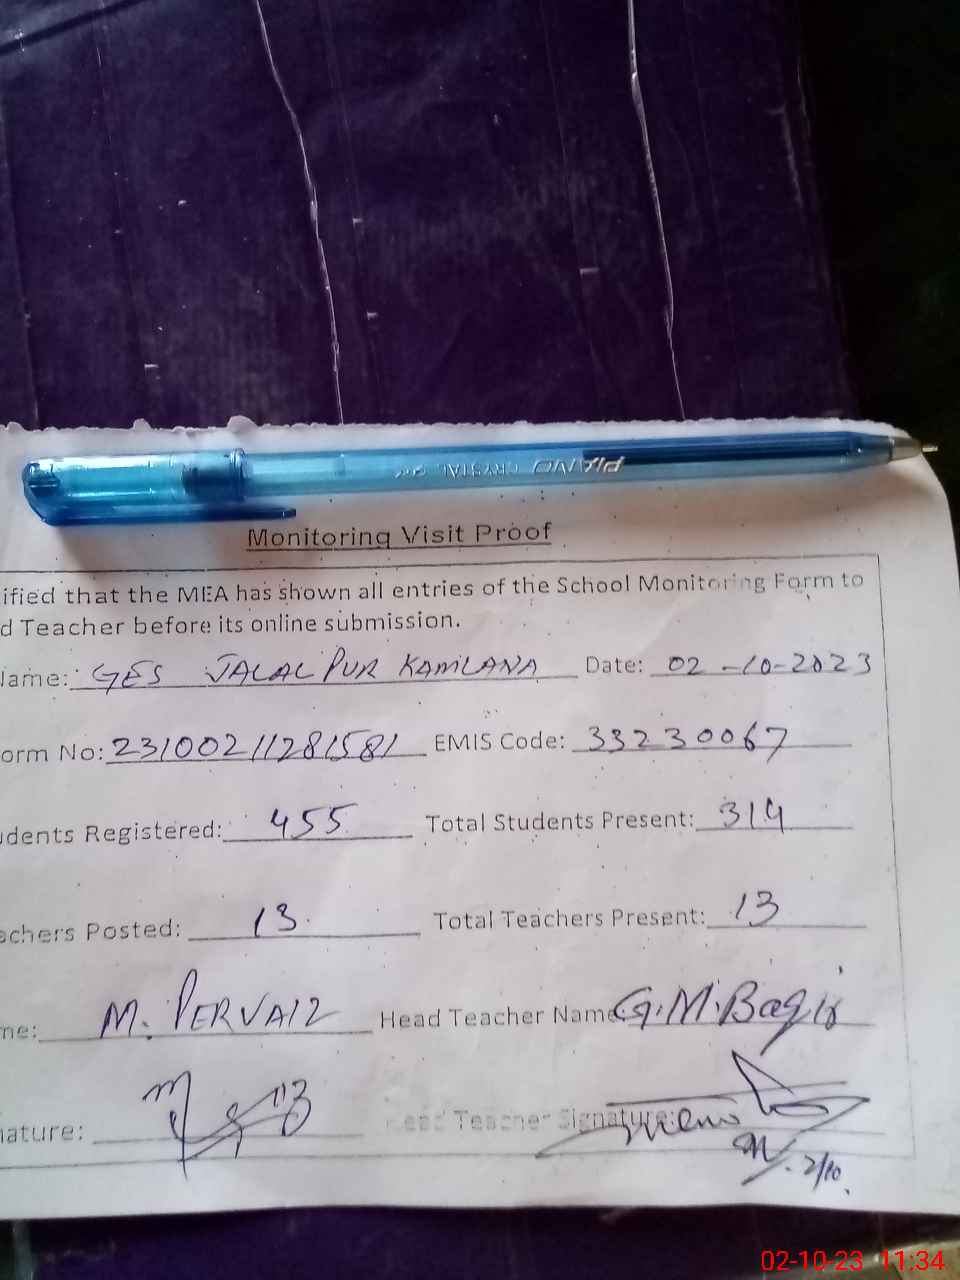 PIANO CRYSTAL
Monitoring Visit Proof
ified that the MEA has shown all entries of the School Monitoring Form to
d Teacher before its online submission.
Name: GES JALAL PUR KAMLANA Date: 02-10-2023
orm No: 23100211281581 EMIS Code: 33230067
udents Registered: 455 Total Students Present: 314
achers Posted: 13. Total Teachers Present: 13
me: M. PERVAIZ Head Teacher Name: G.M.Baqir
nature: Head Teacher Signature:
2/10.
02-10-23 11:34